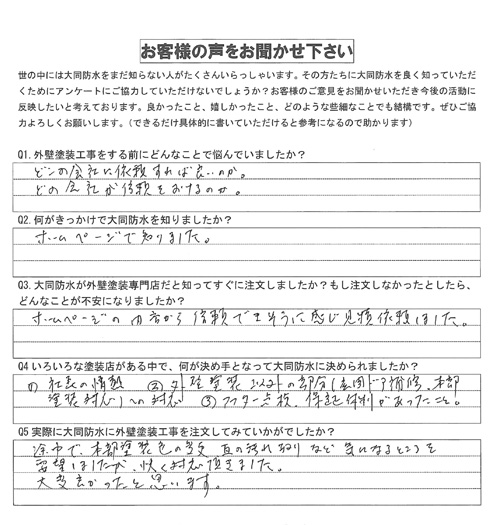 お客様の声をお聞かせ下さい
世の中には大同防水をまだ知らない人がたくさんいらっしゃいます。その方たちに大同防水を良く知っていただ
くためにアンケートにご協力していただけないでしょうか？お客様のご意見をお聞かせいただき今後の活動に
反映したいと考えております。良かったこと、嬉しかったこと、どのような些細なことでも結構です。ぜひご協
力よろしくお願いします。（できるだけ具体的に書いていただけると参考になるので助かります）
Q1.外壁塗装工事をする前にどんなことで悩んでいましたか？
どこの会社に依頼すれば良いのか。
どの会社が信頼をおけるのか。
Q2.何がきっかけで大同防水を知りましたか？
ホームページで知りました。
Q3.大同防水が外壁塗装専門店だと知ってすぐに注文しましたか？もし注文しなかったとしたら、
どんなことが不安になりましたか？
ホームページの内容から信頼できそうに感じ見積依頼しました。
Q4いろいろな塗装店がある中で、何が決め手となって大同防水に決められましたか？
① 社長の情熱 ②外壁塗装以外の部分(玄関ドア補修、木部
塗装対応)への対応 ③アフター点検、保証体制があったこと。
Q5実際に大同防水に外壁塗装工事を注文してみていかがでしたか？
途中で、木部塗装色の変更、瓦の汚れ取りなど気になるところを
要望しましたが、快く対応頂きました。
大変良かったと思います。